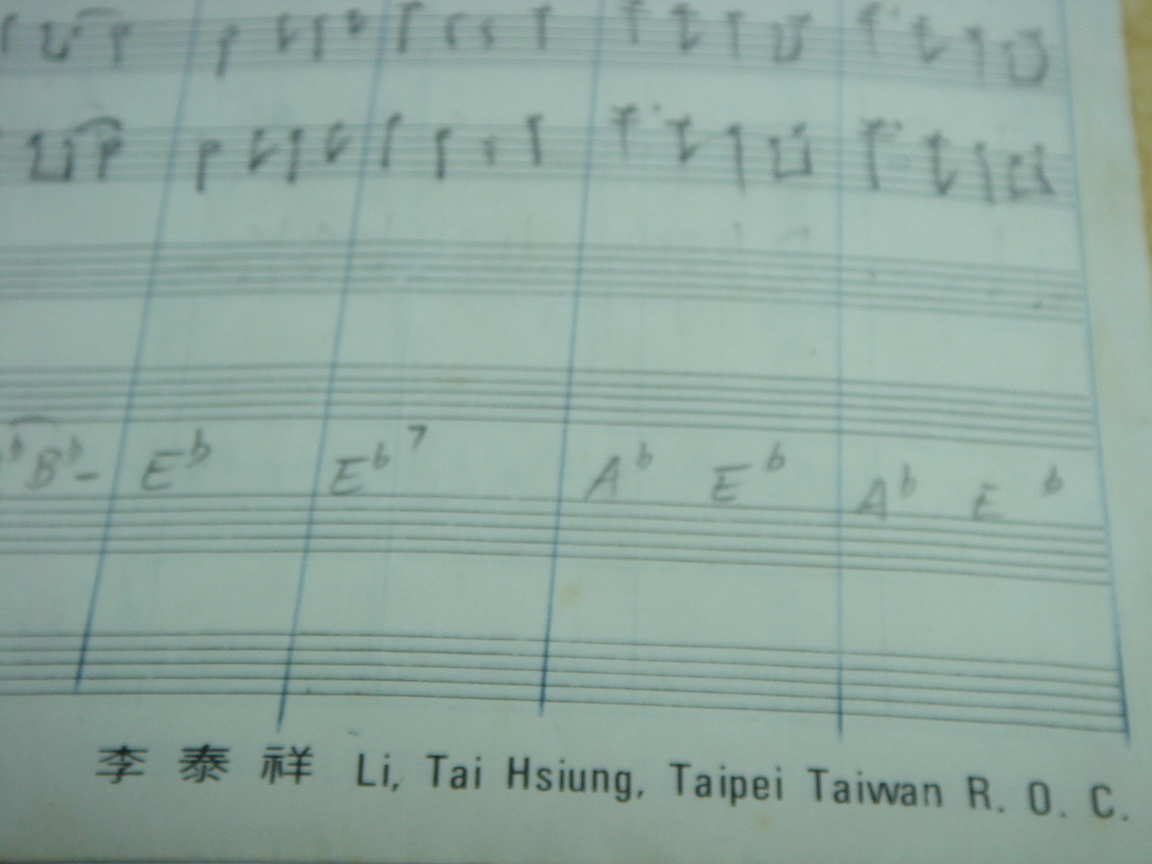 B♭- E♭ E♭7 A♭ E♭ A♭ E♭
李 泰 祥 Li, Tai Hsiung, Taipei Taiwan R. O. C.